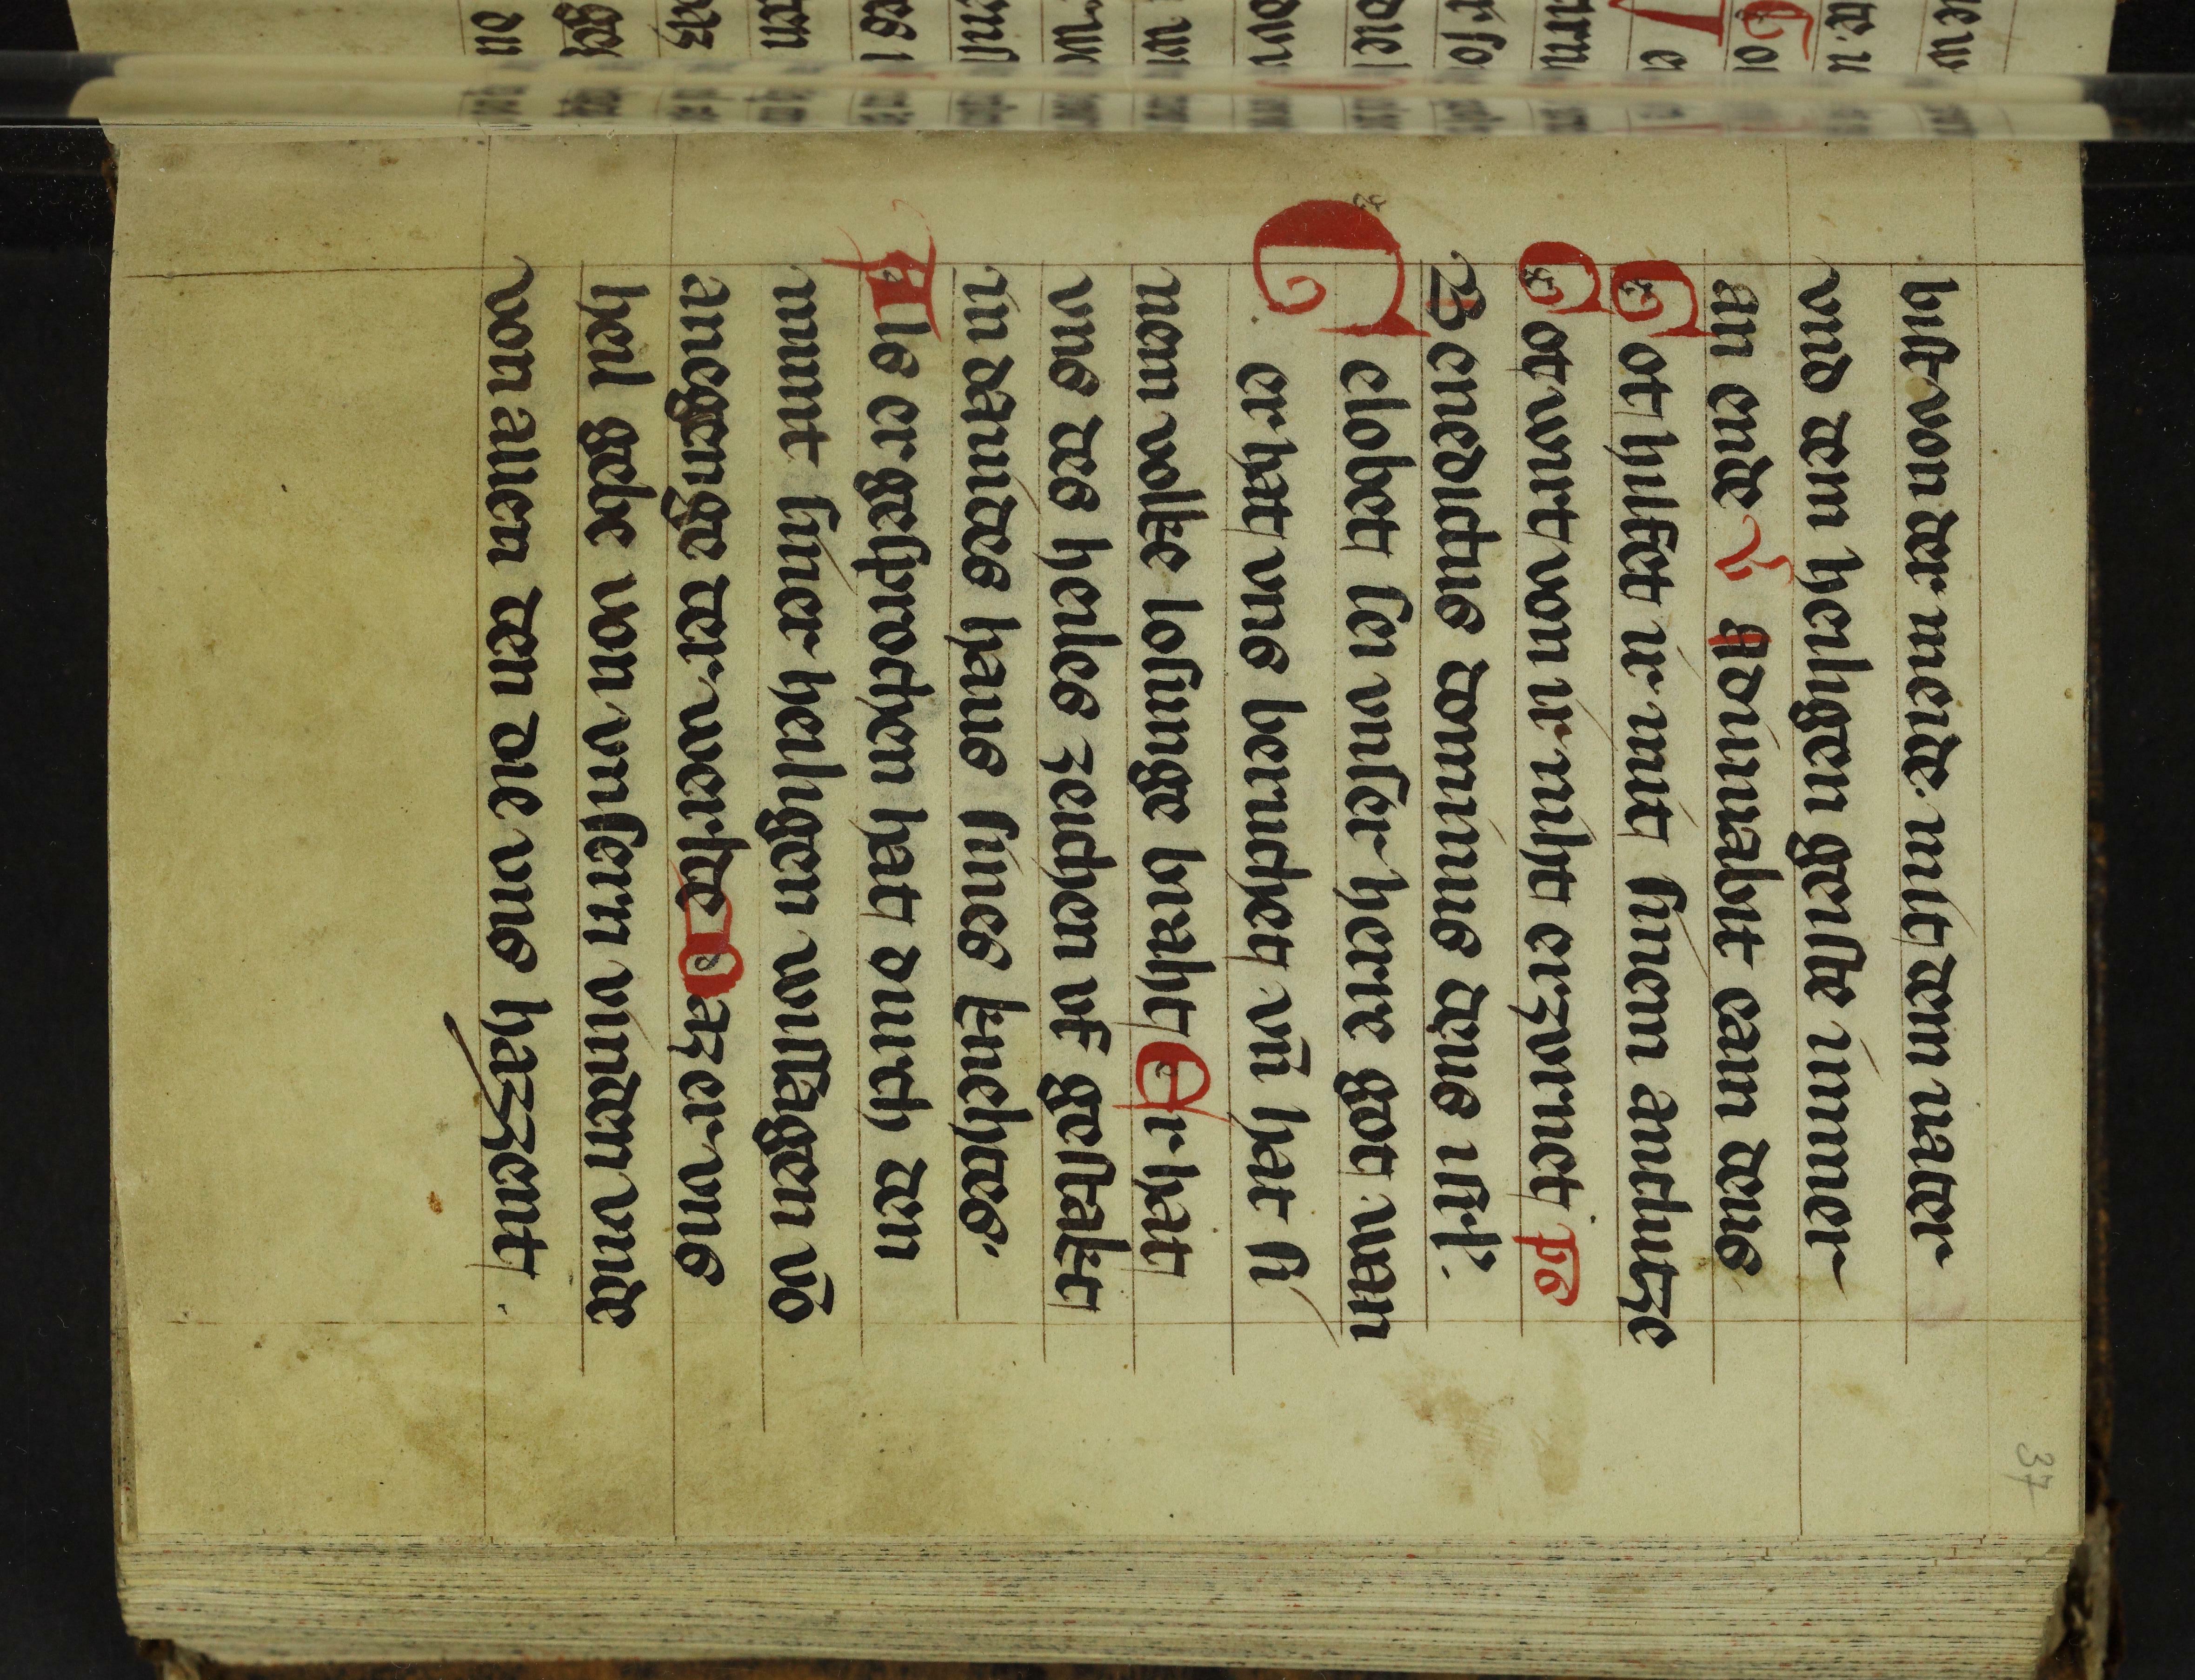 bist von der meide. mit dem vater
vnd dem heiligen geiste immer
an ende ℟ Adiuuabit eam deus
Got hilfet ir mit sinem antlutze
Got wirt von ir niht erzvrnet ps
Benedictus dominus deus isrl'.
Gelobet sei vnser herre got. wan
er hat vns beruchet vñ hat si
nem volke losunge braht Er hat
vns des heiles zeichen vf gestaket
in dauides haus sines knehtes.
Als er gesprochen hat durch den
munt siner heiligen wissagen vō
anegenge der werlte Daz er vns
heil gebe von vnsern vinden vnde
von allen den die vns hazzent.
37